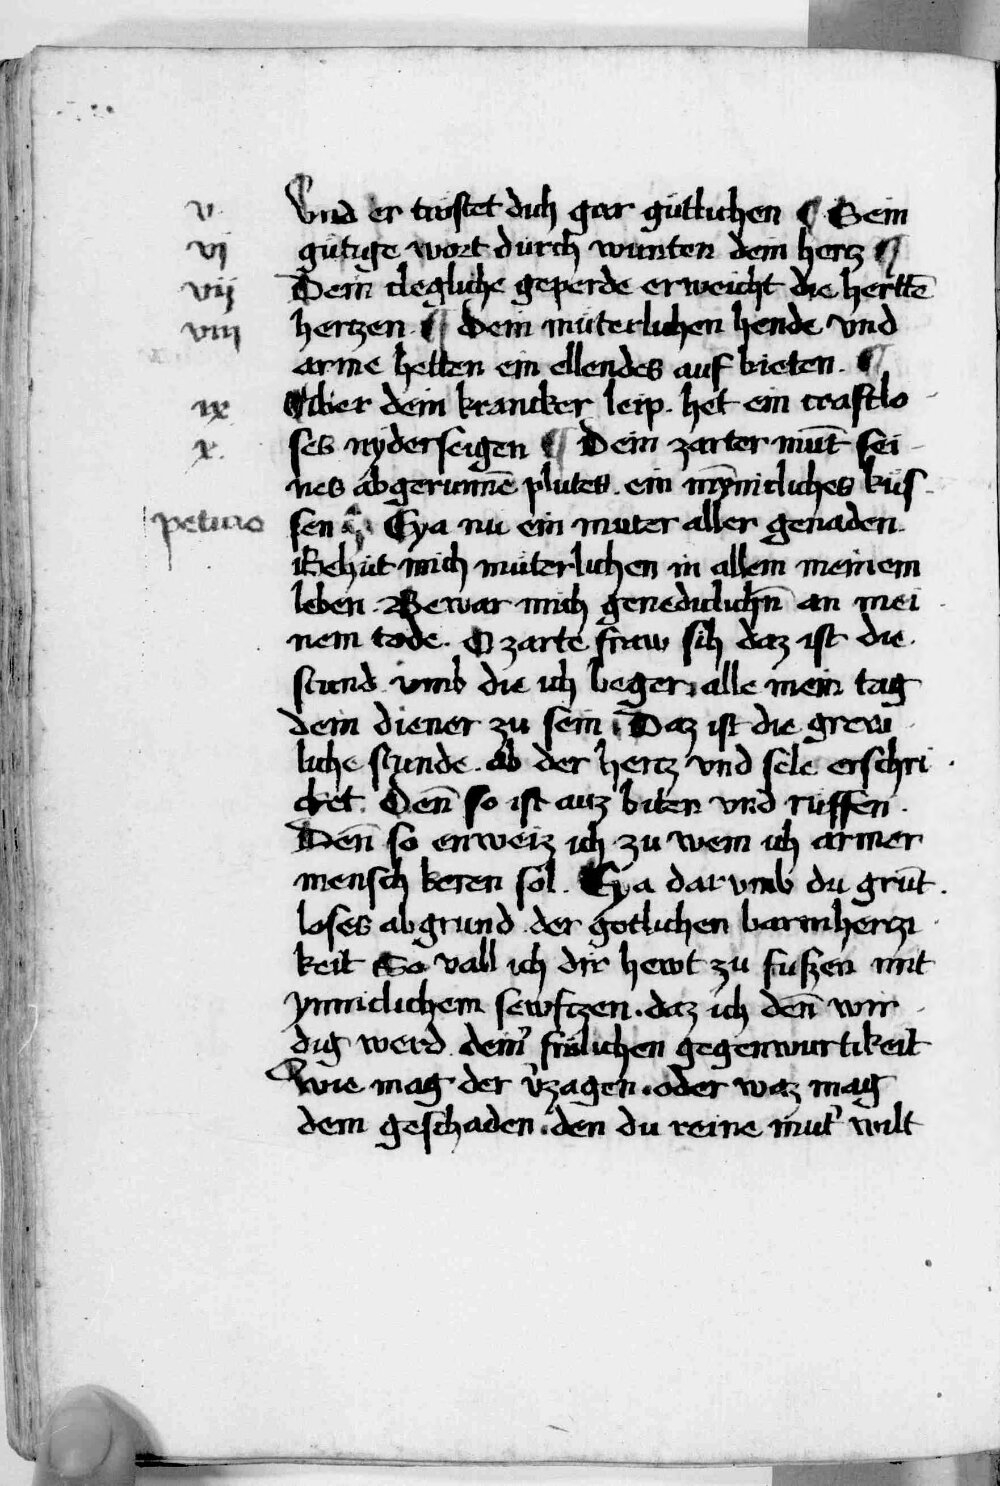 v. Vnd er trostet dich gar gütlichen ¶ Sein
vj gütige wort durch wunten dein hertz ¶
vij Dein clegliche geperde erweicht die hertte̅
viij hertzen. ¶ Dein müterlichen hende vnd
arme hetten ein ellendes auf bieten. ¶
ix Aber dein krancker leip. het ein craftlo
x. ses nyderseigen ¶ Dein zarter mu̅t sei
nes abgerunne̅ plutes. ein my̅nicliches küs
peticio sen ¶ Eya nu ein muter aller genaden.
Behüt mich müterlichen in allem meinem
leben. Bewar mich genediclich̅n an mei
nem tode. O zarte fraw sih daz ist die
stund vmb die ich beger, alle mein tag
dein diener zu sein. Daz ist die grew
liche stunde. ab der hertz vnd sele erschri
cket. Den̅ so ist auz biten vnd rüffen.
Den̅ so enweiz ich zu wem ich armer
mensch keren sol. Eya dar vmb du gru̅t
loses abgrund der gotlichen barmhertzi
keit So vall ich dir hewt zu fuszen mit
ynniclichem sewftzen. daz ich den̅ wir
dig werd dein' frölichen gegenwurtikeit
Wie mag der v'zagen. oder waz mag
dem geschaden. den du reine mut' wilt